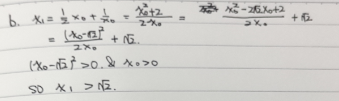 b. x₁ = ½x₀ + 1/x₀ = (x₀²+2)/(2·x₀) = (x₀² - 2√2x₀ + 2)/(2x₀) + √2
= (x₀-√2)²/(2x₀) + √2.
(x₀-√2)² > 0. & x₀>0
SO x₁ > √2.